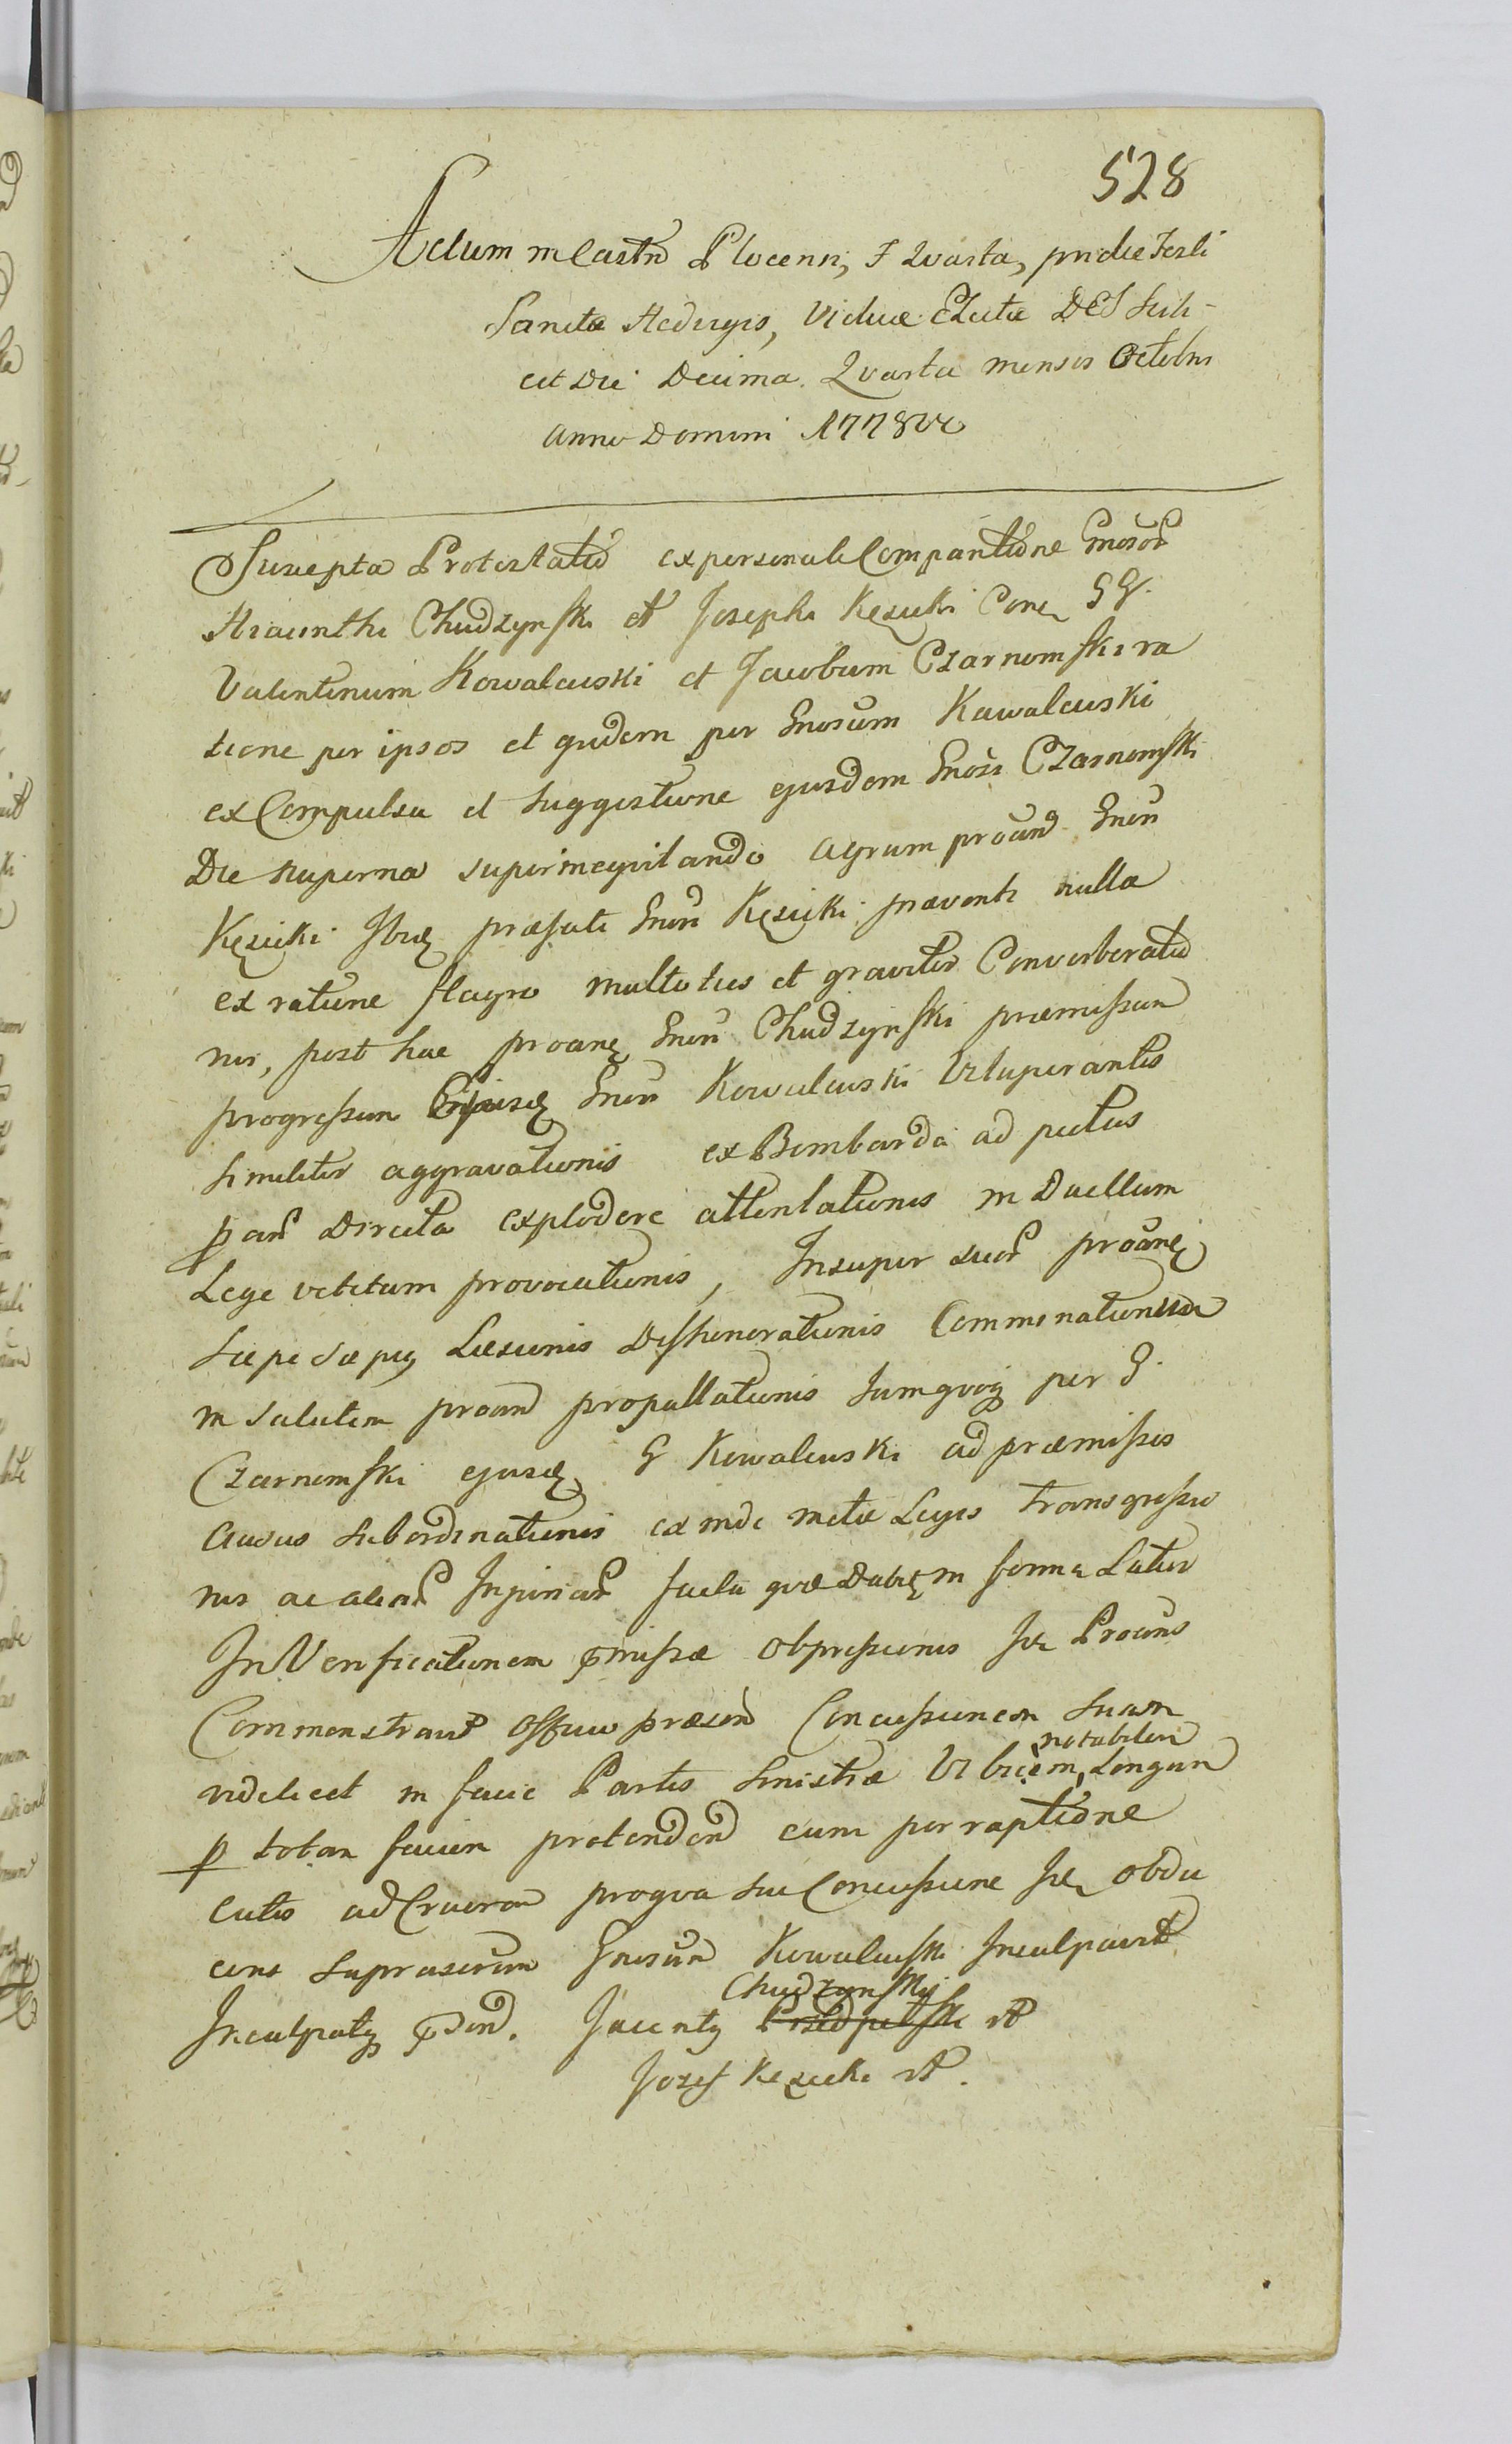 528
Actum in Castro Plocensi, F Quarta, pridie Festi
Sanctæ Hedvigis, Viduæ Electæ DEI scili-
cet Die Decima Quarta mensis Octobris
Anno Domini 1778vo
Suscepta Protestatio ex personali Comparitione Gnosor
Hiacinthi Chudzynski et Josephi Kęsicki Cone GG.
Valentinum Kowalewski et Jacobum Czarnomski ra
tione per ipsos et quidem per Gnosum Kowalewski
ex Compulsu et suggestione ejusdem Gnosi Czarnomski
Die superna superinequitando agrum proand Gnosi
Kęsicki Ibid præfati Gnosi Kęsicki præventi nulla
ex ratione flagro multoties et graviter Converberatio
nis, post hæc proane Gnosi Chudzynski præmissam
progressum Gnosi Kowalewski Vituperantis
similiter aggravationis ex Bombarda ad pectus
directa explodere attentationis in Duellum
Lege vetitum provocationis, Insuper suor proane
sæpe sæpius Læsionis Dishonorationis Comminationisque
in salutem proand propallationis tumquoque per G.
Czarnomski ejusd G Kowalewski ad præmissos
Ausus subordinationis ex inde metæ Legis transgressio
nis ac aliar Injuriar facta quæ Dabit in forma Latior
In Verificationem pmissæ obpressionis Idem Proans
Commonstravit Officio præsenti Concussionem suam
videlicet in facie Partis sinistræ Vibicem, notabilem Longam
p totam faciem protendend cum perraptione
cutis ad Cruorem proqua sui Concussione Idem obdu
cens suprascrum Gnosum Kowalewski Inculpavit
Inculpatq pnd. Jacenty Chudzynski mp
Jozef Kęsicki mp.